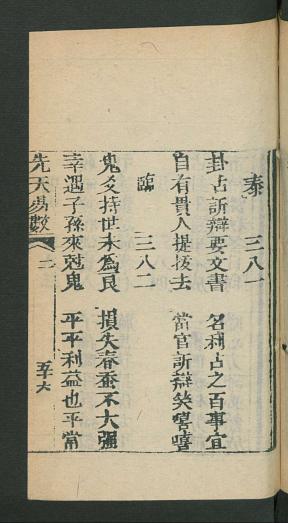 泰 三八一
卦占訴辯要文書 名利占之百事宜
自有貴人提拔去 當官訴辯笑嘻嘻
臨 三八二
鬼爻持世未為良 損失春蚕不大强
幸遇子孫來尅鬼 平平利益也平當
先天易數 二 五十六